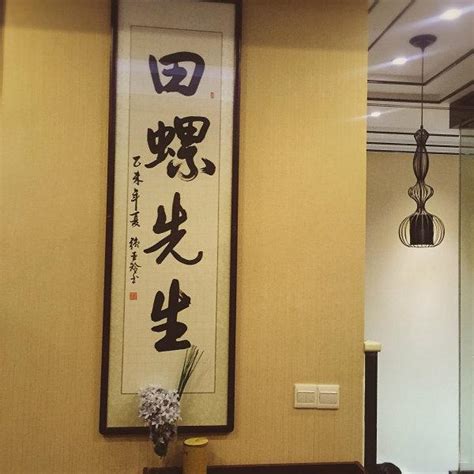 田螺先生
乙未年夏